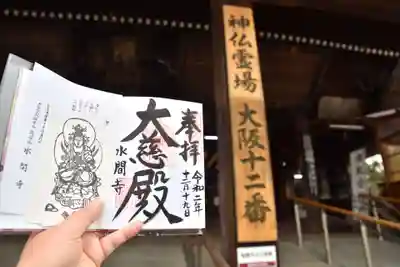 奉拝
大慈殿
水間寺
令和二年
十二月十九日
水間寺
神仏霊場
大阪十二番